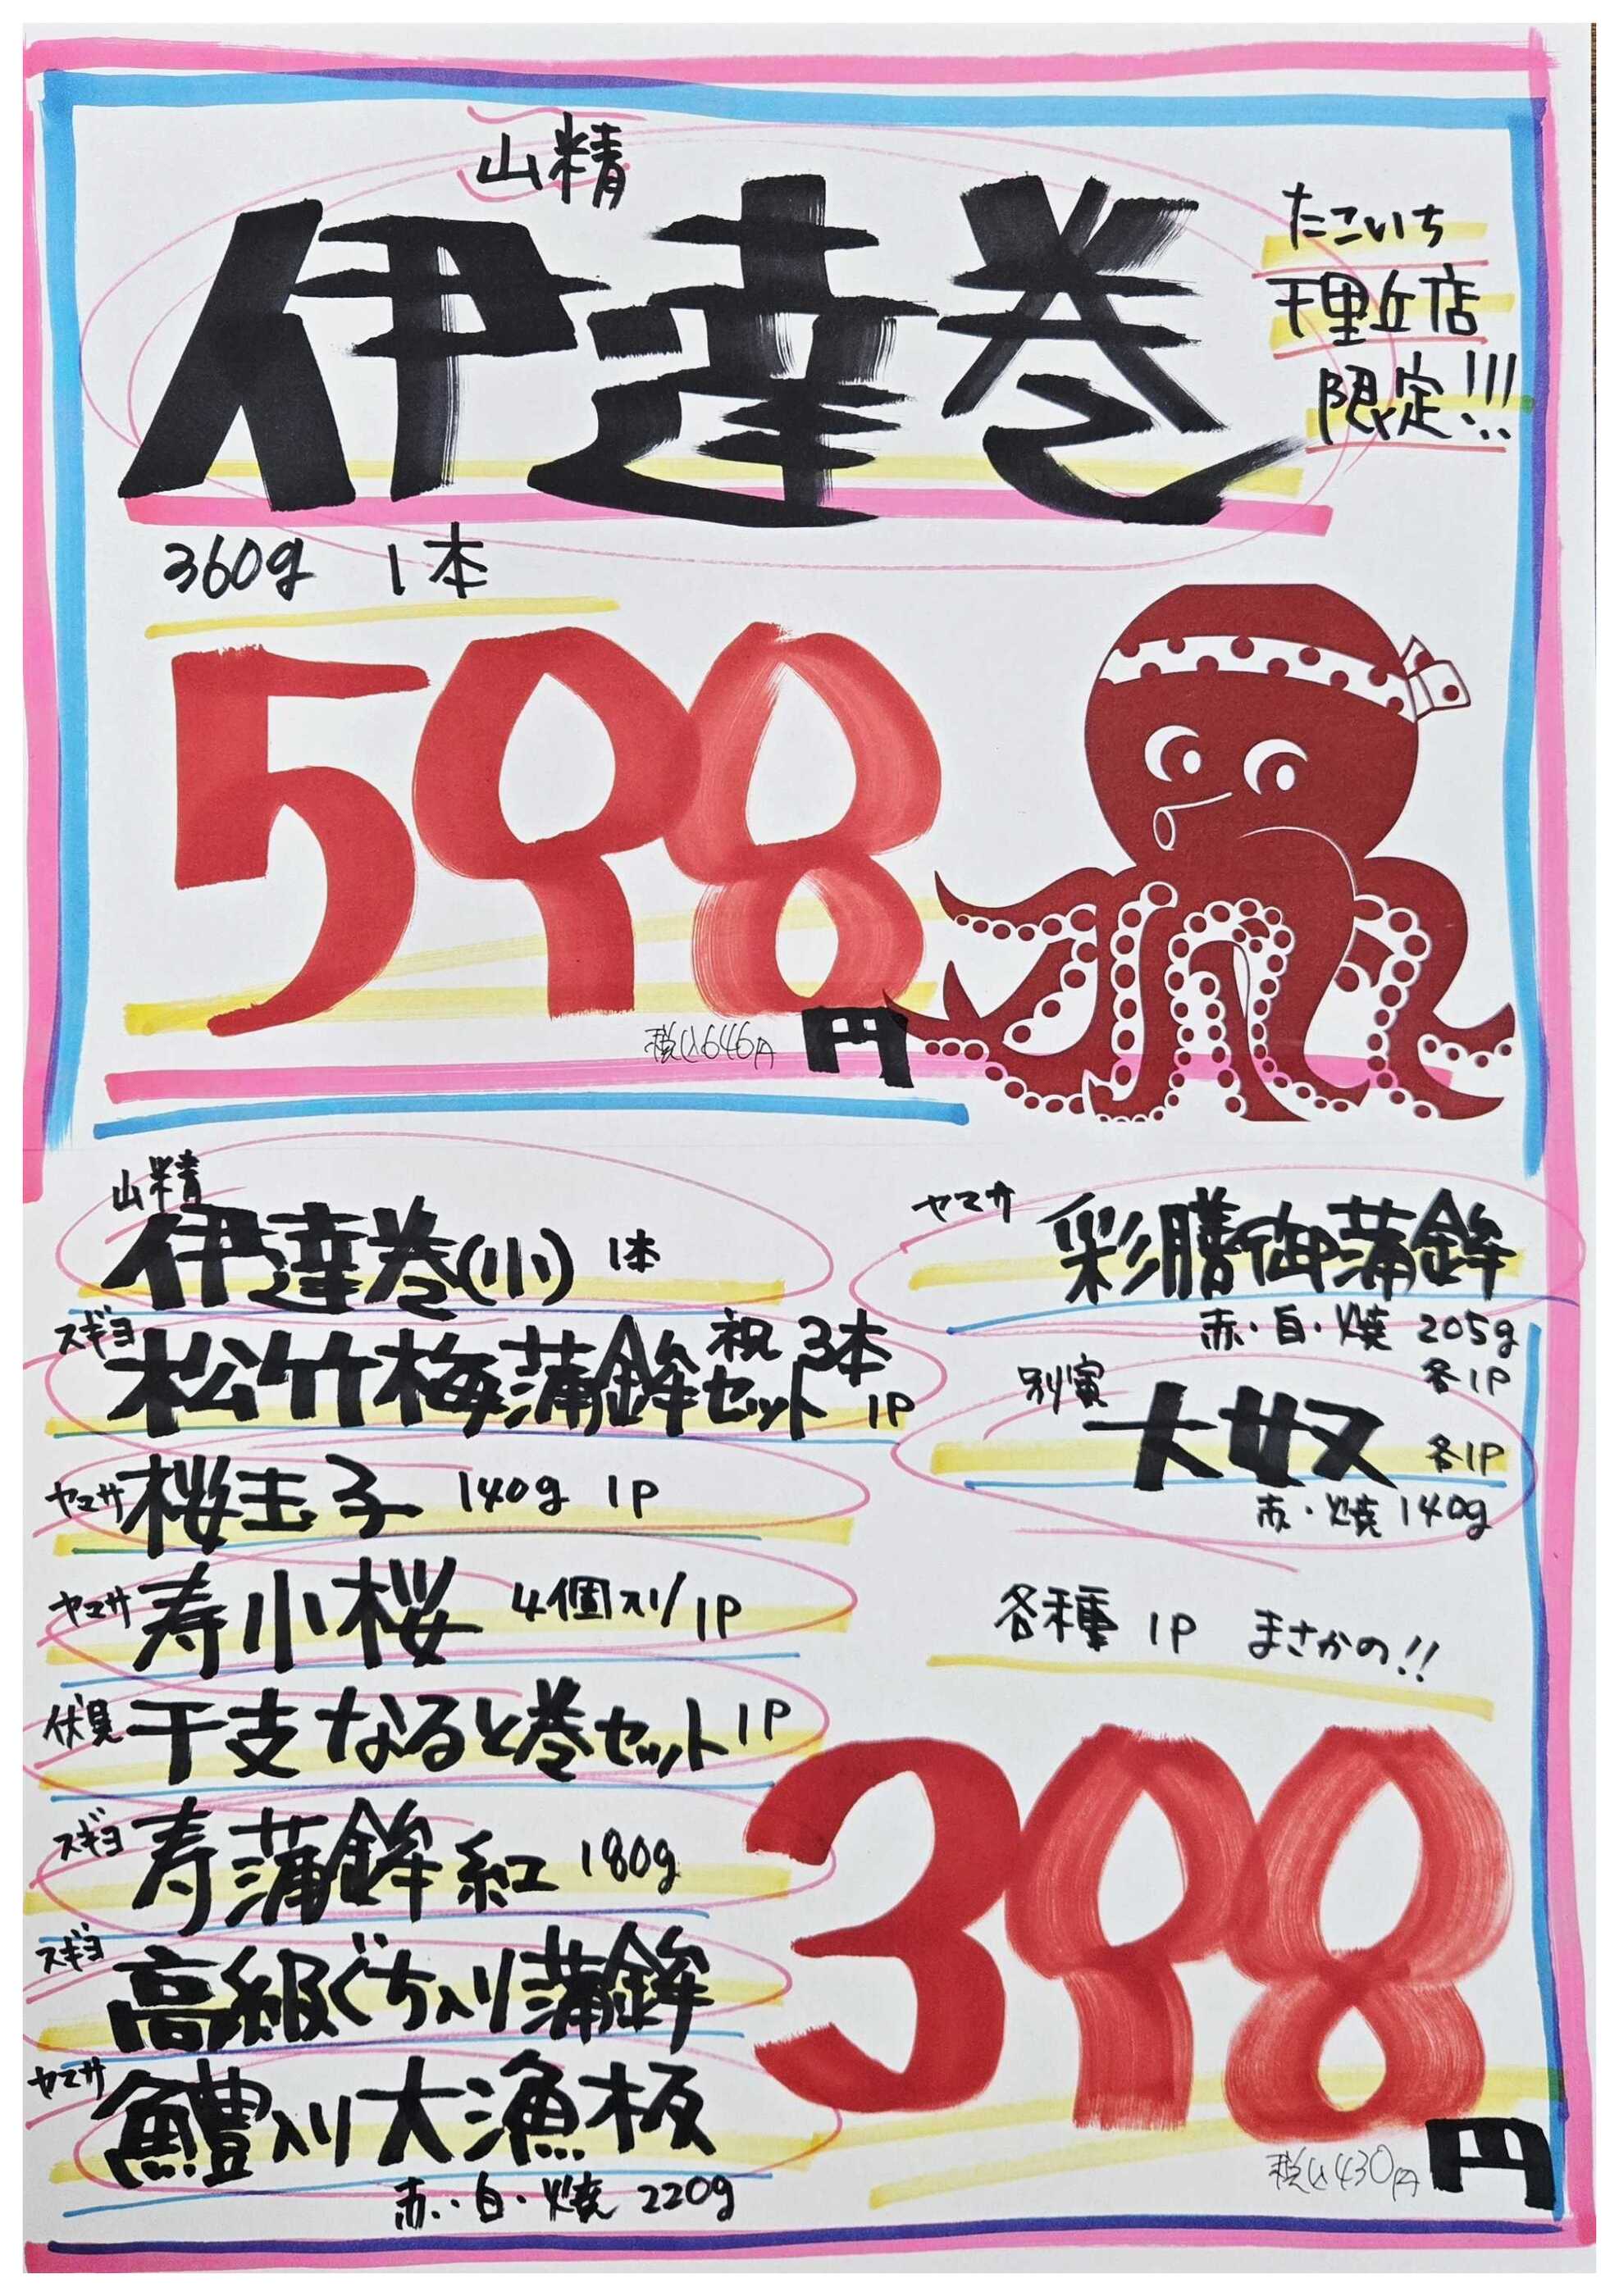 山精
伊達巻
たこいち
千里丘店
限定!!!
360g 1本
598円
税込646円
山精
伊達巻(小) 1本
スギヨ
松竹梅蒲鉾 祝3本セット 1P
ヤマサ 桜玉子 140g 1P
ヤマサ 寿小桜 4個入り 1P
伏見 干支なると巻セット 1P
スギヨ 寿蒲鉾紅 180g
スギヨ
高級ぐち入り蒲鉾
ヤマサ
鱧入り大漁板
赤・白・焼 220g
ヤマサ 彩膳御蒲鉾
赤・白・焼 205g
各1P
別寅
大奴 各1P
赤・焼 140g
各種 1P まさかの!!
398円
税込430円